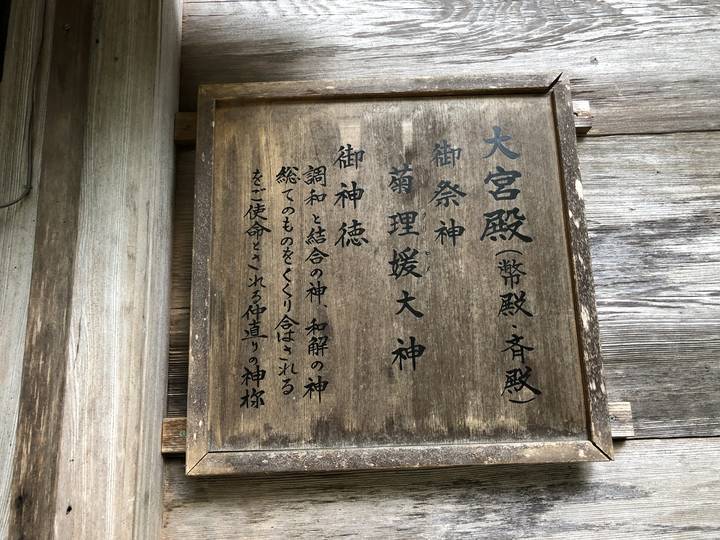 大宮殿（幣殿・斉殿）
御祭神
菊理媛大神
御神徳
調和と結合の神、和解の神
総てのものをくくり合はされる
をご使命とされる仲直りの神様